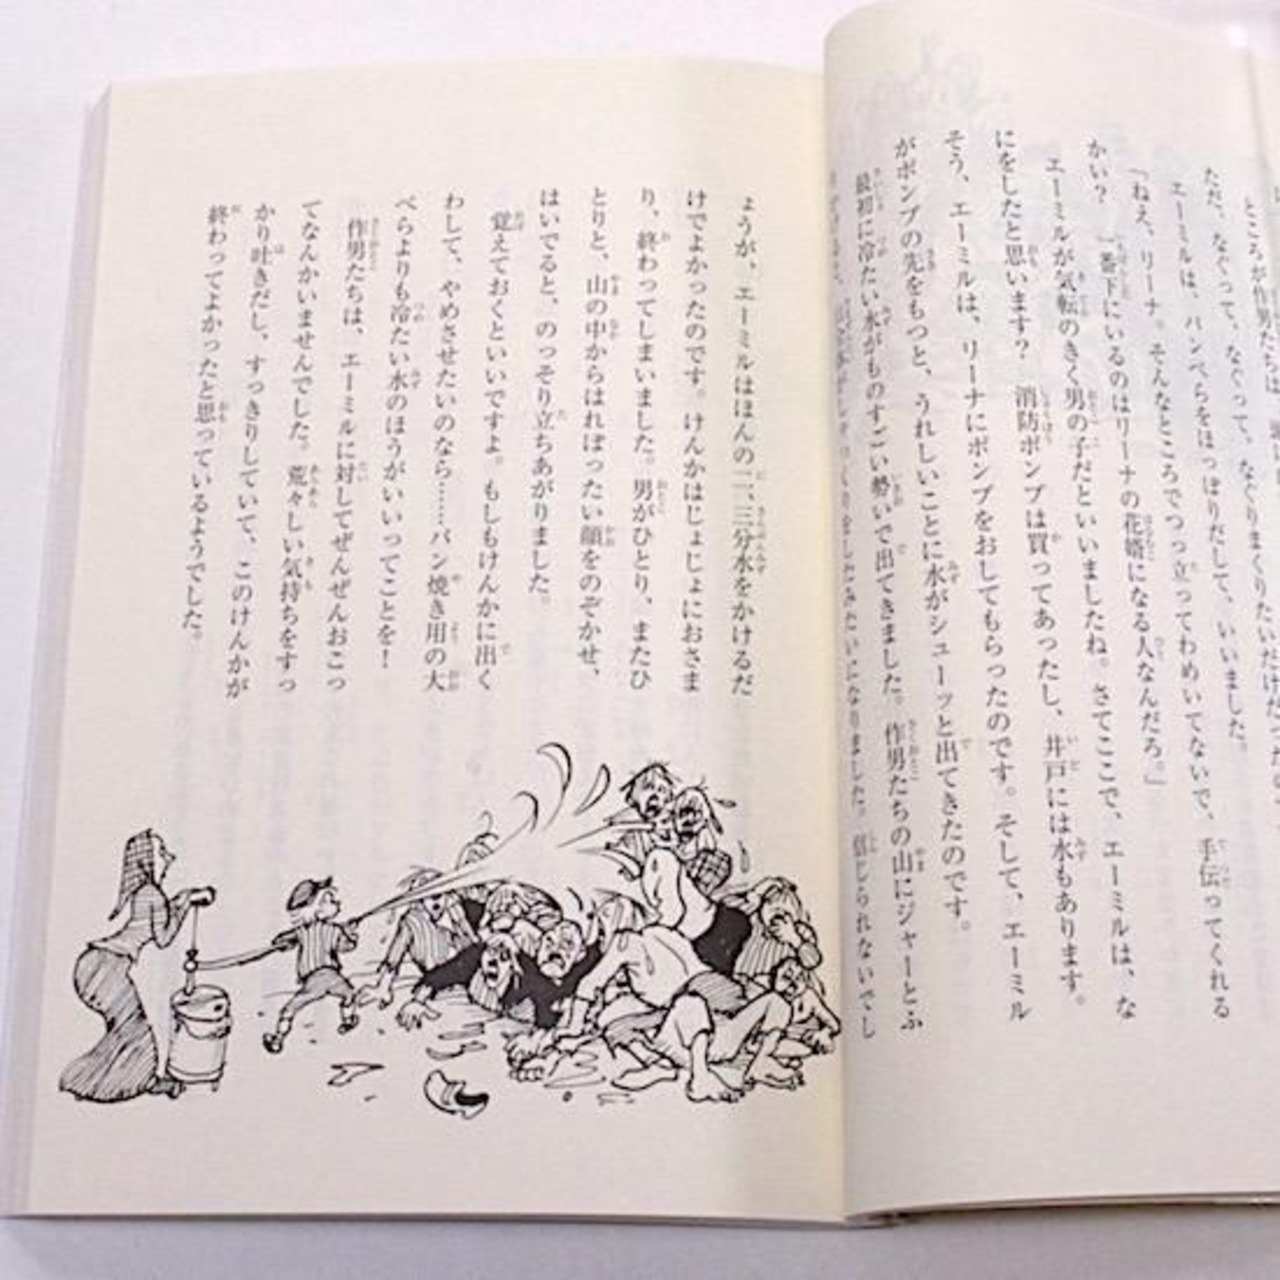 ところが作男たちは
ただ、なぐって、なぐって、なぐりまくりたいだけだった
エーミルは、パンべらをほっぽりだして、いいました。
「ねえ、リーナ。そんなところでつっ立ってわめいてないで、手伝ってくれる
かい? 一番下にいるのはリーナの花婿になる人なんだろ。」
エーミルが気転のきく男の子だといいましたね。さてここで、エーミルは、な
にをしたと思います? 消防ポンプは買ってあったし、井戸には水もあります。
そう、エーミルは、リーナにポンプをおしてもらったのです。そして、エーミル
がポンプの先をもつと、うれしいことに水がシューッと出てきたのです。
最初に冷たい水がものすごい勢いで出てきました。作男たちの山にジャーとふ
みたいになりました。信じられないでし
ょうが、エーミルはほんの二、三分水をかけるだ
けでよかったのです。けんかはじょじょにおさま
り、終わってしまいました。男がひとり、またひ
とりと、山の中からはれぼったい顔をのぞかせ、
はいでると、のっそり立ちあがりました。
覚えておくといいですよ。もしもけんかに出く
わして、やめさせたいのなら……パン焼き用の大
べらよりも冷たい水のほうがいいってことを!
作男たちは、エーミルに対してぜんぜんおこっ
てなんかいませんでした。荒々しい気持ちをすっ
かり吐きだし、すっきりしていて、このけんかが
終わってよかったと思っているようでした。